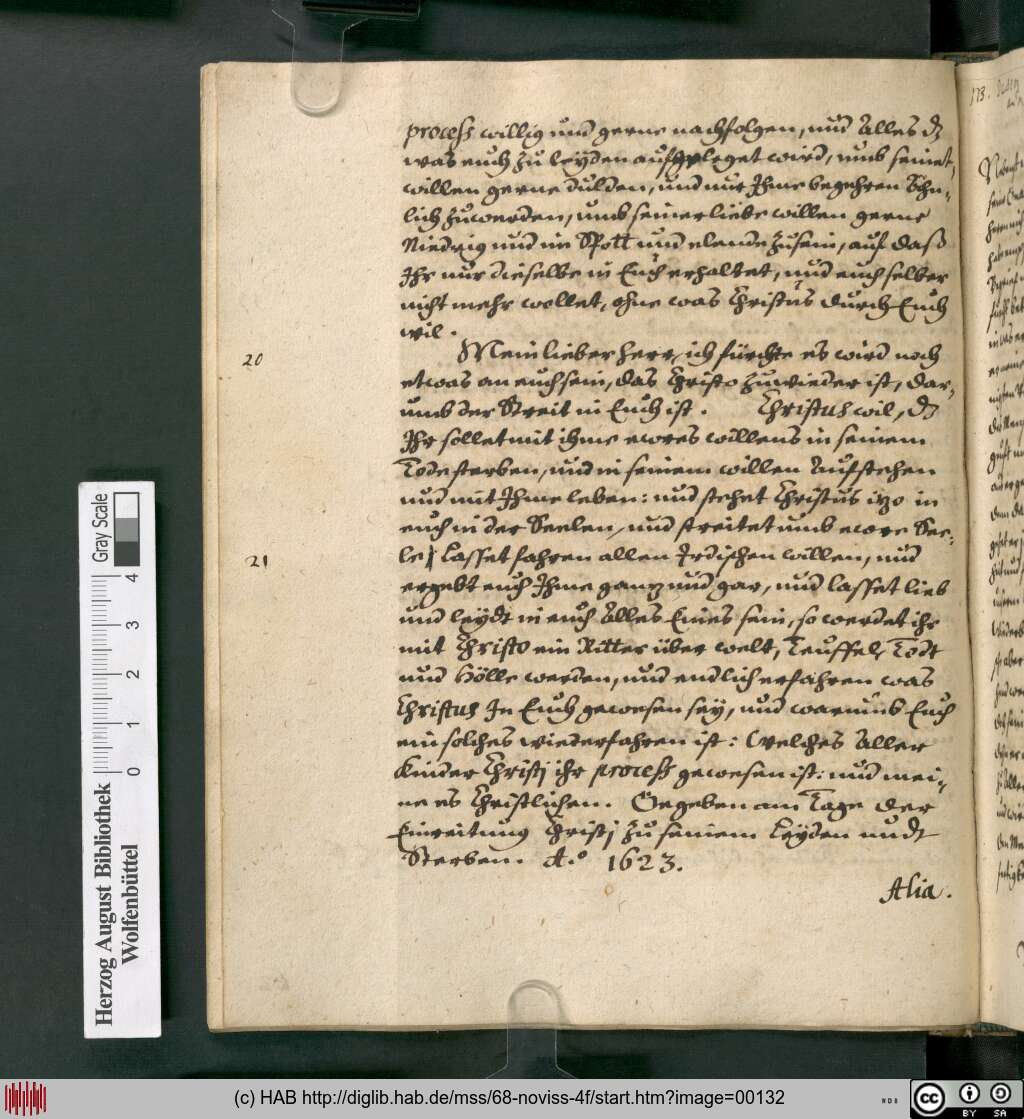 process willig und gerne nachfolgen, und Alles dz
was euch zu leyden aufgeleget wird, umb seinet,
willen gerne dulden, und nur Ihme begehren Ähn,
lich zuwerden, umb seiner liebe willen gerne
Niedrig und in Spott und elende zusein, auf daß
Ihr nur dieselbe in Euch erhaltet, und euch selber
nicht mehr wollet, ohne was Christus durch Euch
wil.
20
Mein lieber herr, ich fürchte es wird noch
etwas an euch sein, das Christo zuwieder ist, dar,
umb der Streit in Euch ist. Christus wil, dz
Ihr sollet mit ihme ewres willens in seinem
Tode sterben, und in seinem willen Aufstehen
und mit Ihme leben: und stehet Christus itzo in
euch in der Seelen, und streitet umb ewre See,
21
le, Lasset fahren allen Irdischen willen, und
ergebt euch Ihme ganz und gar, und lasset lieb
und leydt in euch Alles Eines sein, so werdet ihr
mit Christo ein Ritter über welt, Teuffel, Todt
und Hölle werden, und endlich erfahren was
Christus In Euch gewesen sey, und warumb Euch
ein solches wiederfahren ist: Welches Aller
Kinder Christj ihr process gewesen ist: und mei,
ne es Christlichen. Gegeben am Tage der
Einreitung Christj zu seinem Leyden undt
Sterben. A.° 1623.
Alia.
173.
Gray Scale
4
3
2
1
0
Herzog August Bibliothek
Wolfenbüttel
(c) HAB http://diglib.hab.de/mss/68-noviss-4f/start.htm?image=00132
cc
BY SA